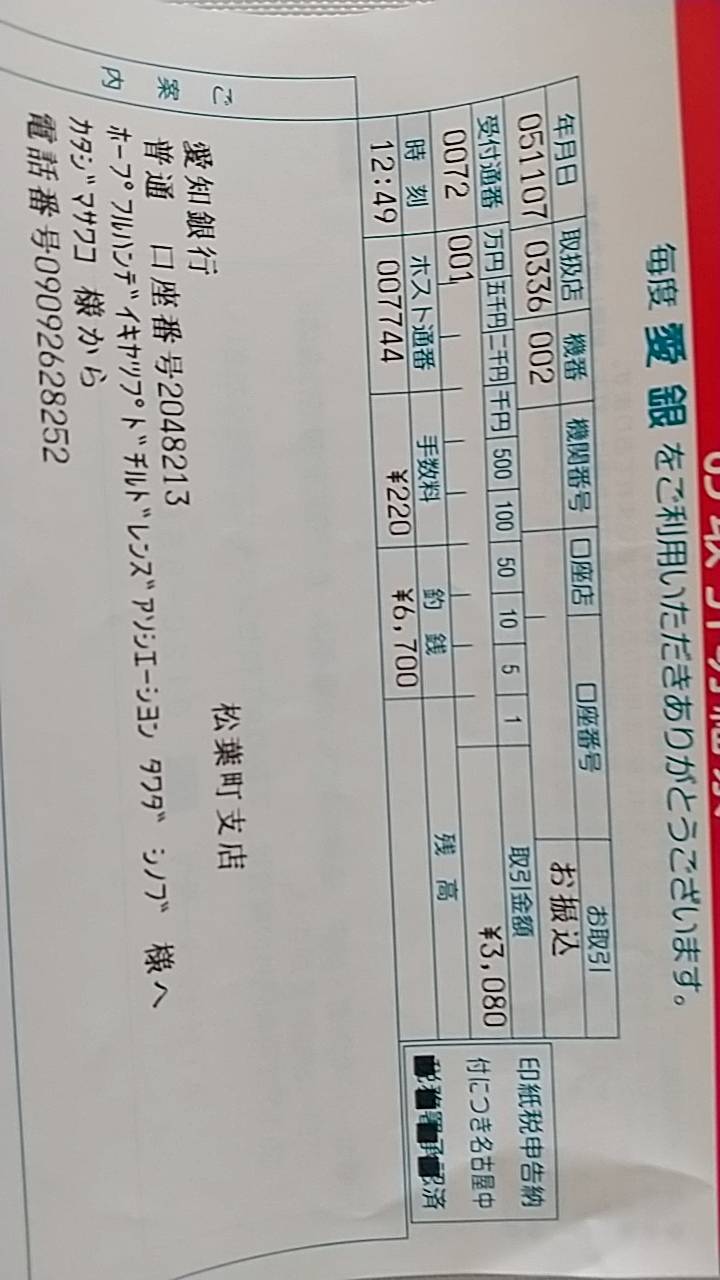 毎度 愛銀 をご利用いただきありがとうございます。
年月日 取扱店 機番 機関番号 口座店 口座番号 お取引
051107 0336 002 お振込
受付通番 万円 五千円 二千円 千円 500 100 50 10 5 1 取引金額
0072 001 ¥3,080
時刻 ホスト通番 手数料 釣銭 残高
12:49 007744 ¥220 ¥6,700
印紙税申告納
付につき名古屋中
税務署承認済
ご案内
愛知銀行 松葉町支店
普通 口座番号2048213
ホープフルハンデイキヤツプドチルドレンズアソシエーシヨン タワダ シノブ 様へ
カタジマサワコ 様から
電話番号09092628252